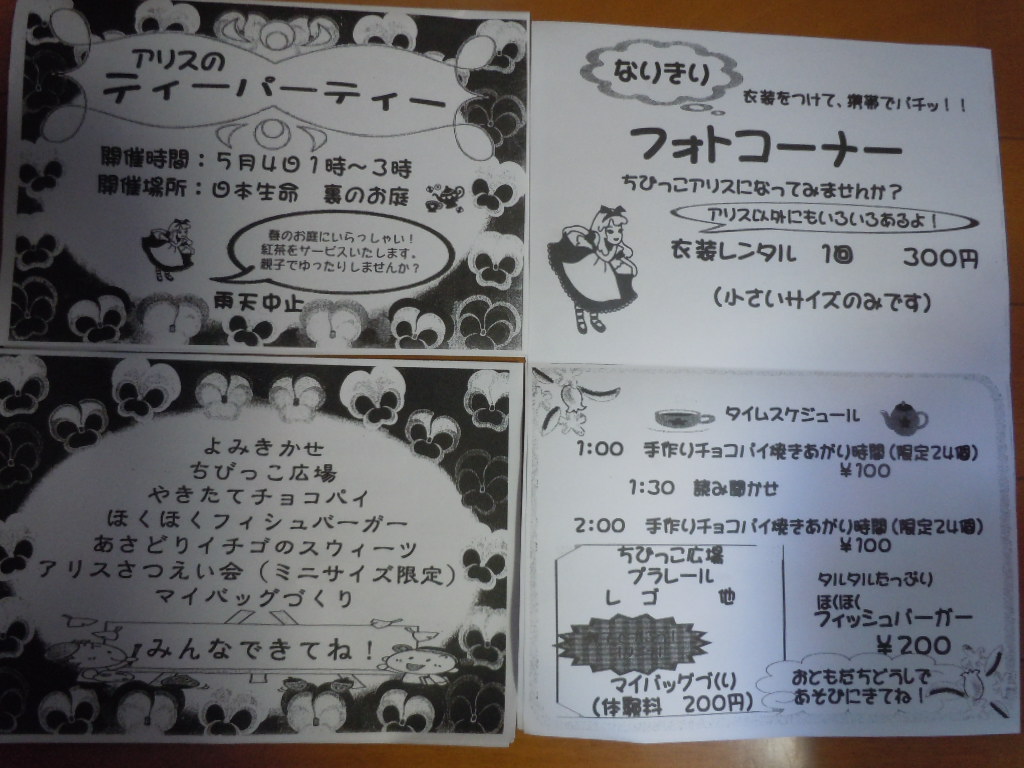 アリスの
ティーパーティー
開催時間：5月4日1時～3時
開催場所：日本生命　裏のお庭
春のお庭にいらっしゃい！
紅茶をサービスいたします。
親子でゆったりしませんか？
雨天中止
なりきり
衣装をつけて、携帯でパチッ！！
フォトコーナー
ちびっこアリスになってみませんか？
アリス以外にもいろいろあるよ！
衣装レンタル　1回　300円
（小さいサイズのみです）
よみきかせ
ちびっこ広場
やきたてチョコパイ
ほくほくフィシュバーガー
あさどりイチゴのスウィーツ
アリスさつえい会（ミニサイズ限定）
マイバッグづくり
みんなできてね！
タイムスケジュール
1:00　手作りチョコパイ焼きあがり時間（限定24個）
￥100
1:30　読み聞かせ
2:00　手作りチョコパイ焼きあがり時間（限定24個）
￥100
ちびっこ広場
プラレール
レゴ　他
マイバッグづくり
（体験料　200円）
タルタルたっぷり
ほくほく
フィッシュバーガー
￥200
おともだちどうしで
あそびにきてね！